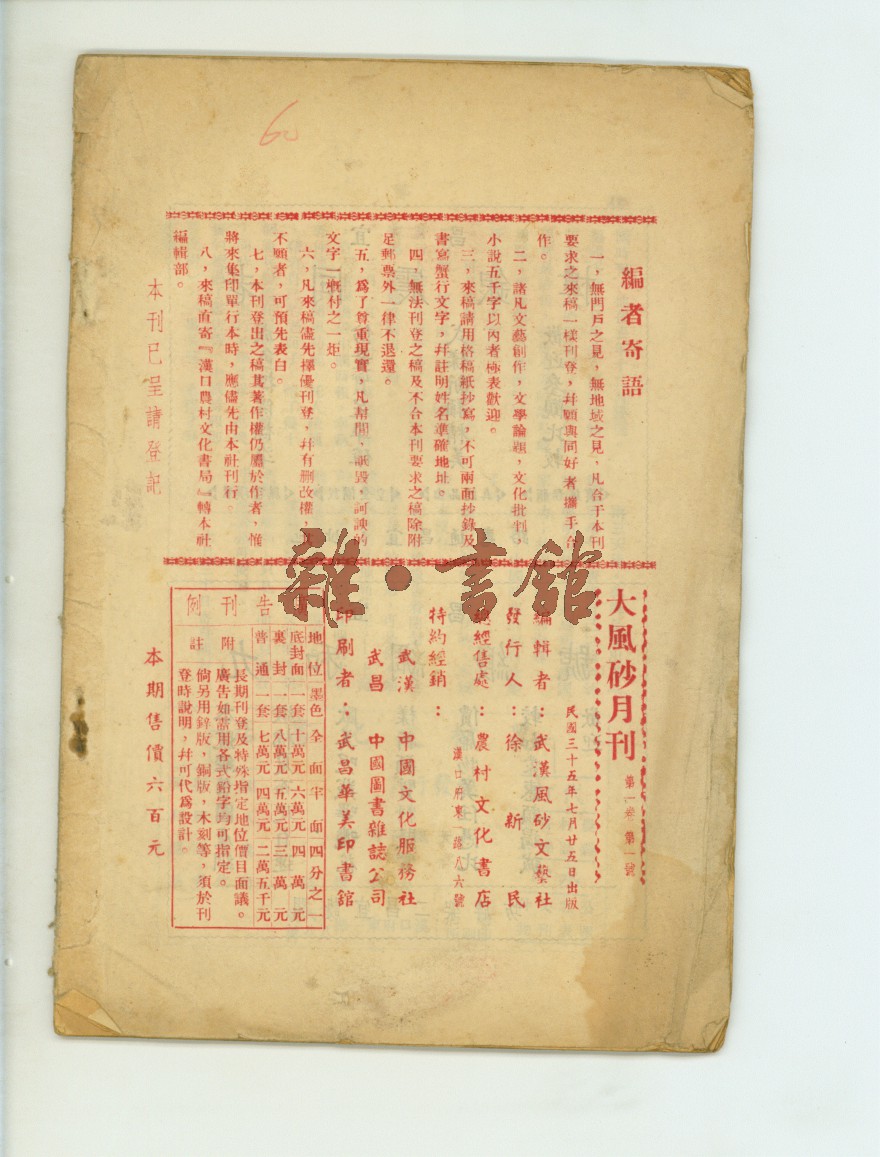 編者寄語
一，無門戶之見，無地域之見，凡合于本刊
要求之來稿一樣刊登，幷願與同好者攜手合
作。
二，諸凡文藝創作，文學論題，文化批判，
小說五千字以內者極表歡迎。
三，來稿請用格稿紙抄寫，不可兩面抄錄及
書寫蟹行文字，幷註明姓名準確地址。
四，無法刊登之稿及不合本刊要求之稿除附
足郵票外一律不退還。
五，爲了尊重現實，凡幇閒，詆毀，訶諛的
文字一槪付之一炬。
六，凡來稿儘先擇優刊登，幷有删改權，
不願者，可預先表白。
七，本刊登出之稿其著作權仍屬於作者，惟
將來集印單行本時，應儘先由本社刊行。
八，來稿直寄『漢口農村文化書局』轉本社
編輯部。
本刊已呈請登記
大風砂月刊
第一卷 第一號
民國三十五年七月廿五日出版
編輯者：武漢風砂文藝社
發行人：徐新民
總經售處：農村文化書店
漢口府東一路八六號
特約經銷：
武漢 中國文化服務社
武昌 中國圖書雜誌公司
印刷者：武昌華美印書館
告刊例
地位 墨色 全面 半面 四分之一
底封面 一套 十萬元 六萬元 四萬元
裏封 一套 八萬元 五萬元 三萬元
普通 一套 七萬元 四萬元 二萬五千元
附註
長期刊登及特殊指定地位價目面議。
廣告如需用各式鉛字均可指定。
倘另用鋅版，銅版，木刻等，須於刊
登時說明，幷可代爲設計。
本期售價六百元
雜·書館